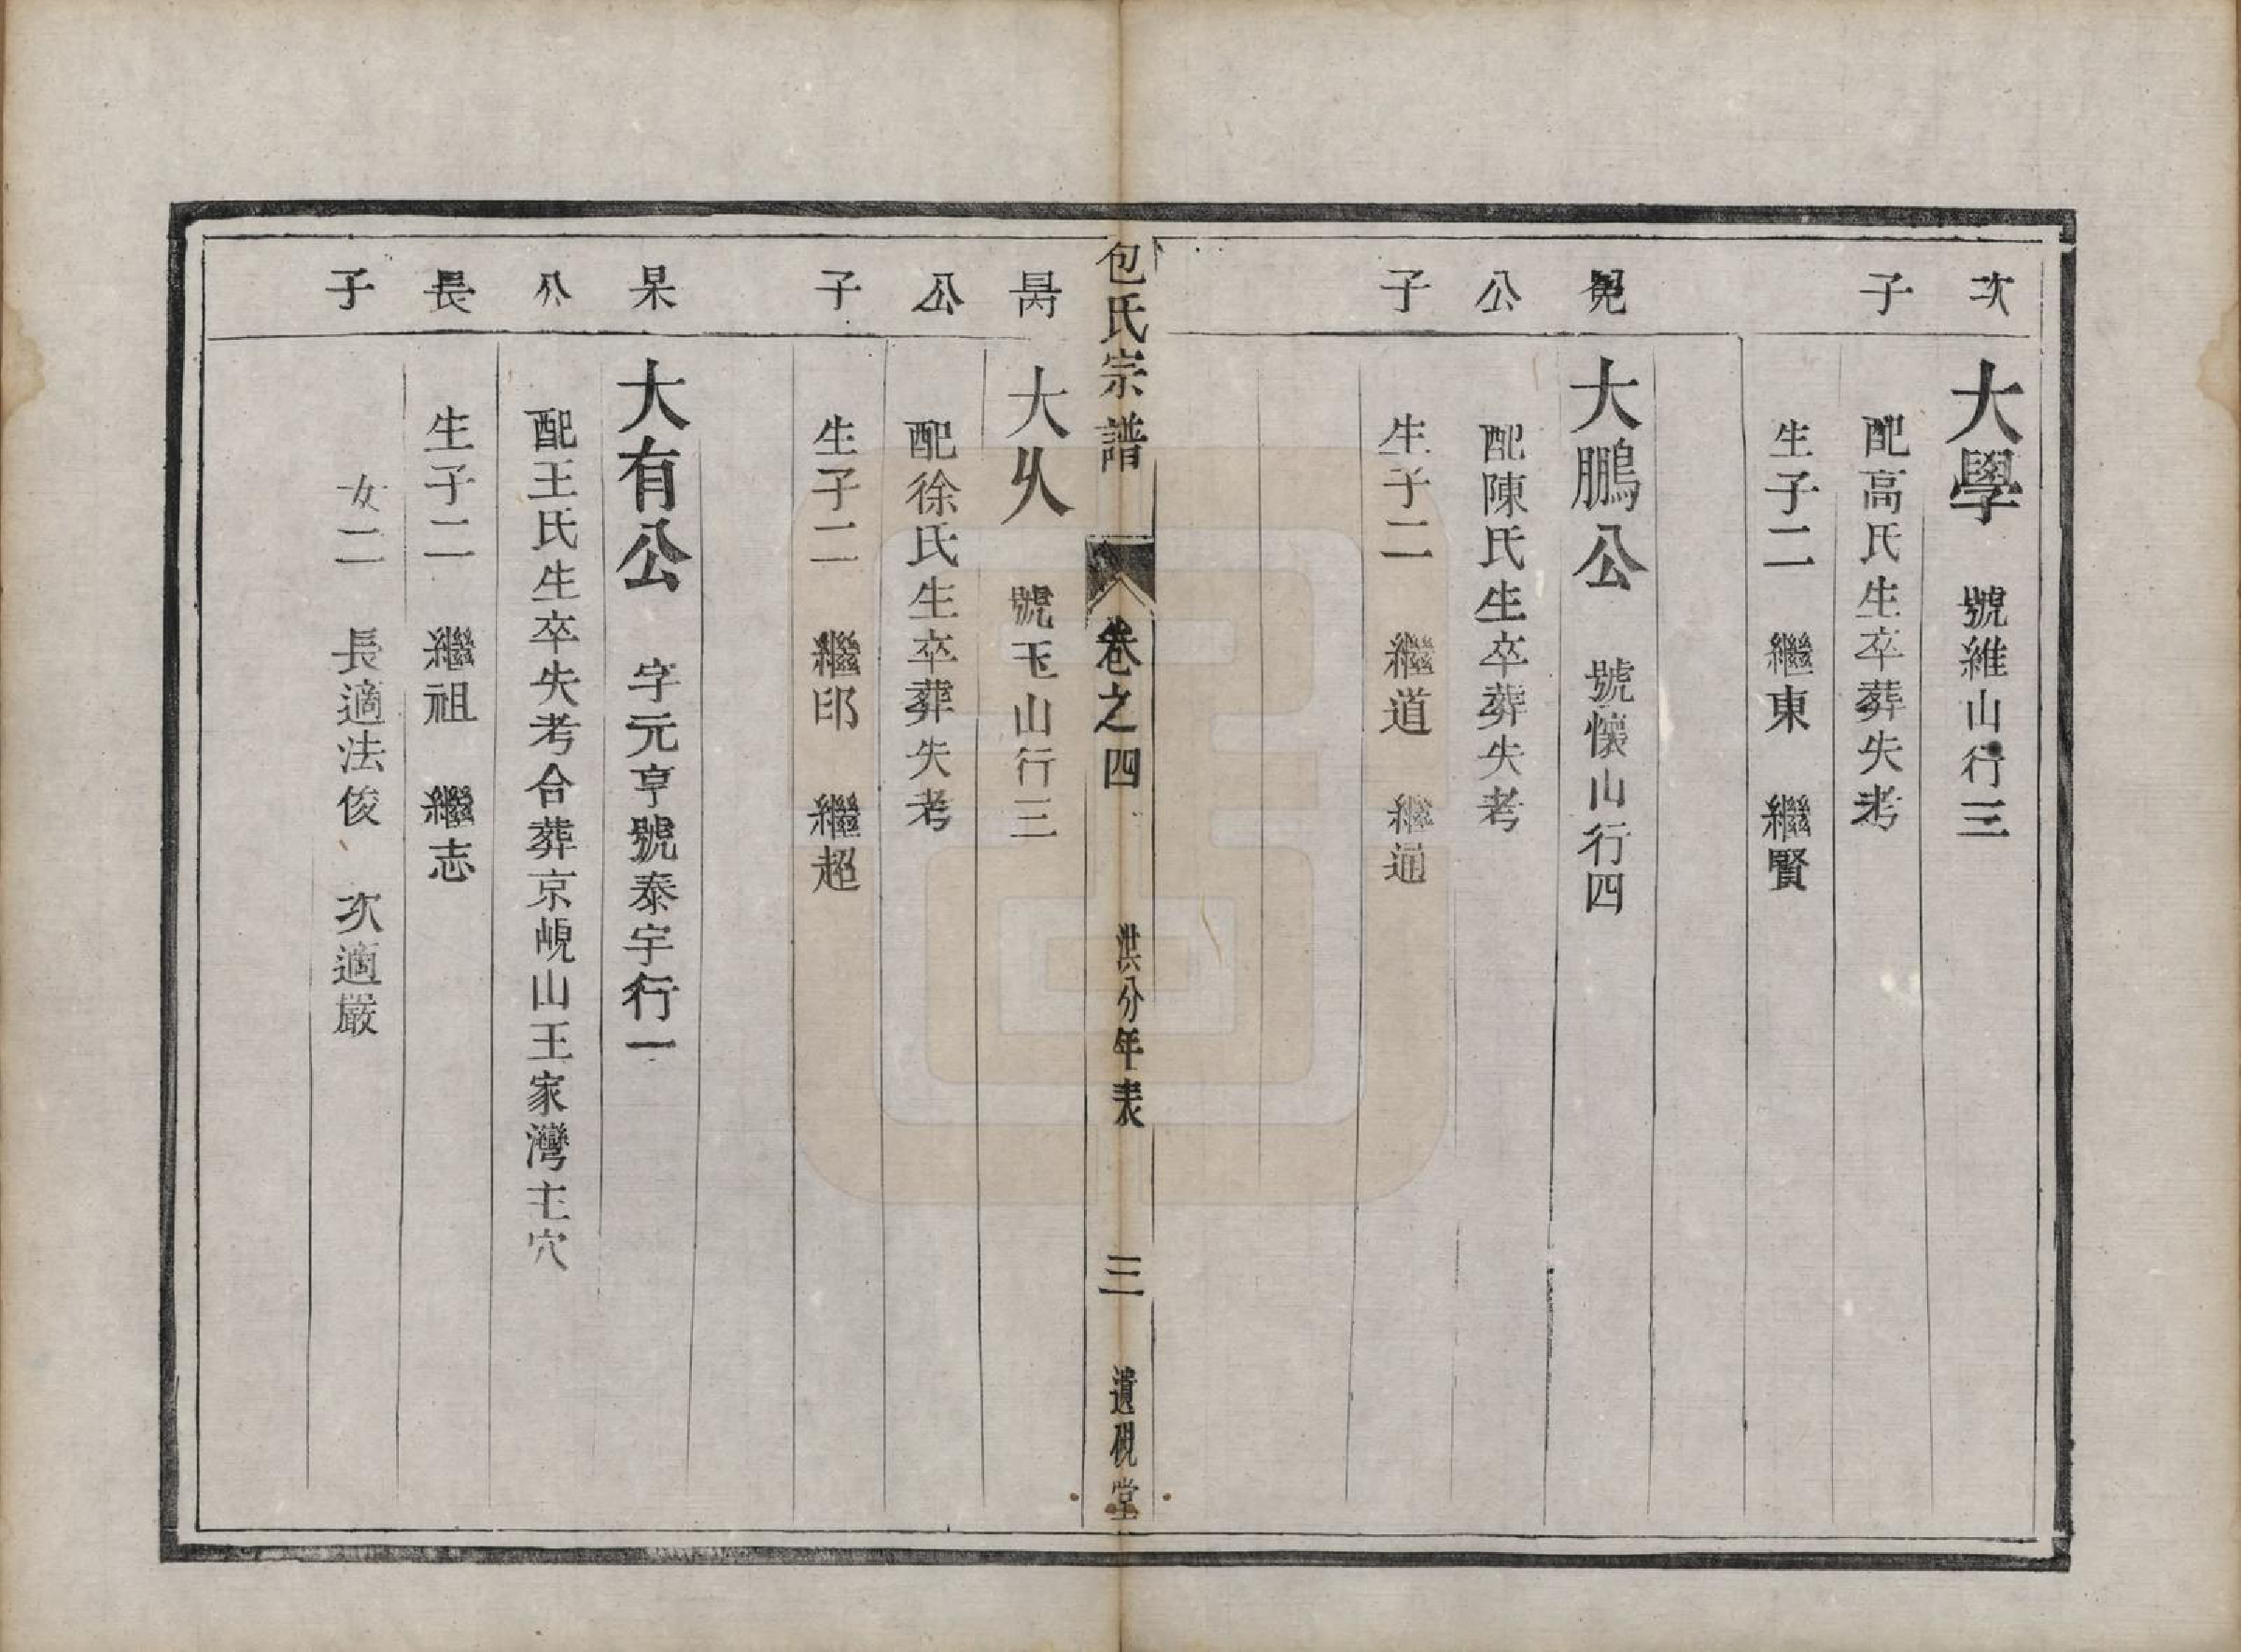 次子
大學 號維山行三
配高氏生卒葬失考
生子二 繼東 繼賢
冕公子
大鵬公 號懷山行四
配陳氏生卒葬失考
生子二 繼道 繼通
包氏宗譜 卷之四 洪分年表 三 遺硯堂
公子
大 號玉山行三
配徐氏生卒葬失考
生子二 繼邱 繼超
杲公長子
大有公 字元亨號泰宇行一
配王氏生卒失考合葬京峴山王家灣主穴
生子二 繼祖 繼志
女二 長適法俊 次適嚴